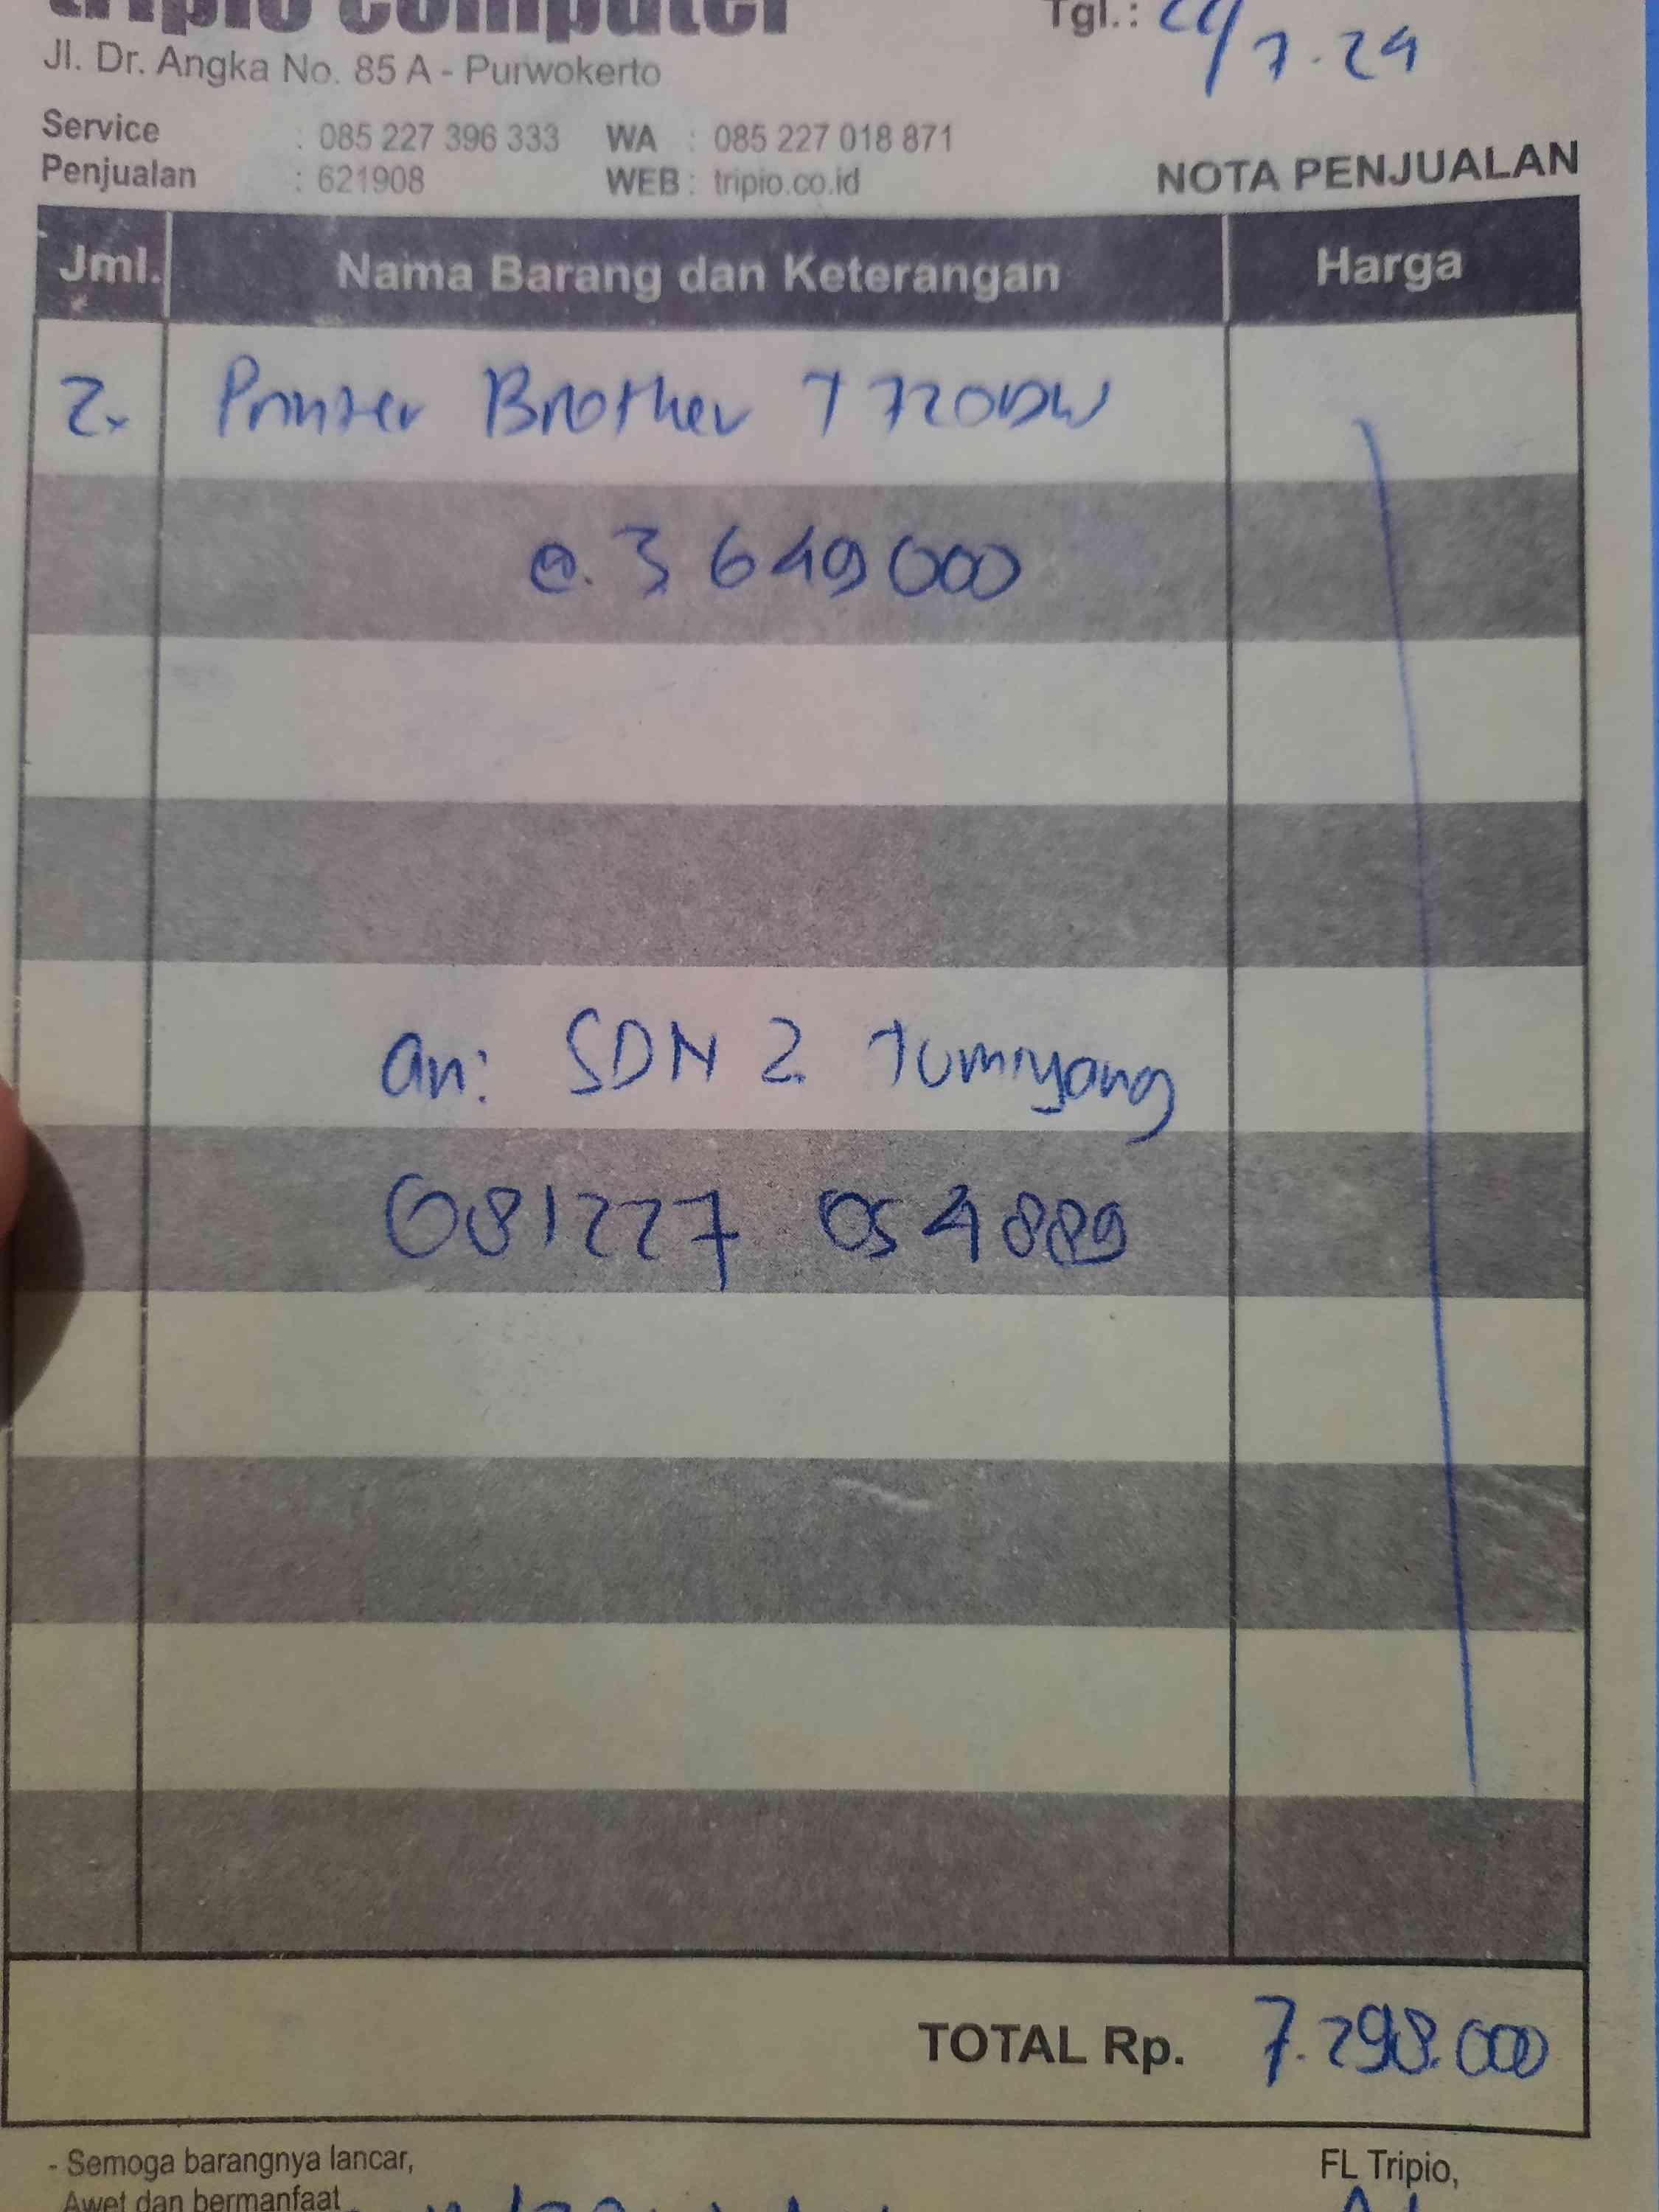 tripio computer
Tgl.: 24/7.24
Jl. Dr. Angka No. 85 A - Purwokerto
Service : 085 227 396 333 WA : 085 227 018 871
Penjualan : 621908 WEB : tripio.co.id
NOTA PENJUALAN
Jml. Nama Barang dan Keterangan Harga
2. Printer Brother T720DW
@. 3 649 000
an: SDN 2 Tumiyang
081227 054889
TOTAL Rp. 7.298.000
- Semoga barangnya lancar,
FL Tripio,
Awet dan bermanfaat